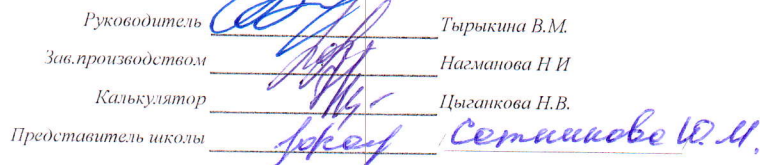 Руководитель Тырыкина В.М.
Зав.производством Нагманова Н И
Калькулятор Цыганкова Н.В.
Представитель школы Сотникова Ю.М.